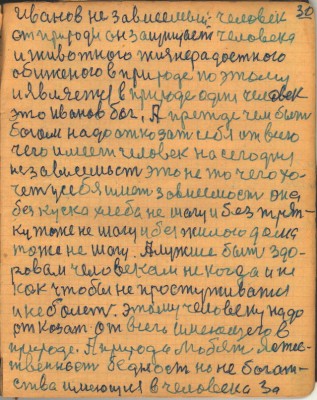 30
Иванов не зависемый человек
от природы он защищает человека
и животного жизнерадостного
обиженого в природе по этому
и является в природе один человек
это Иванов бог, А прежде чем быть
богом надо отказат себя от всего
чего имеет человек на сегодня
независимость это не то чего хо-
чет у себя имет зависемость она,
без куска хлеба не шагу и без тряп-
ки тоже не шагу и без жилого дома
тоже не шагу. А лучше быть здо-
ровам человекам некогда и ни
как чтобы не простуживатся
и не болет. Этому человеку надо
отказат от всего имеющего в
природе. А природа любят естес-
твеность бедност но не богат-
ства имеющия в человека За